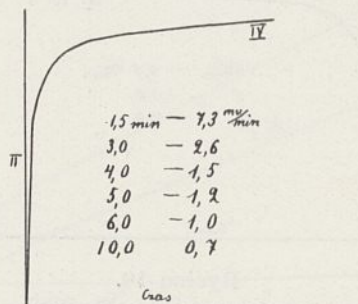 IV
1,5 min — 7,3 mv/min
II
3,0 — 2,6
4,0 — 1,5
5,0 — 1,2
6,0 — 1,0
10,0 0,7
Czas